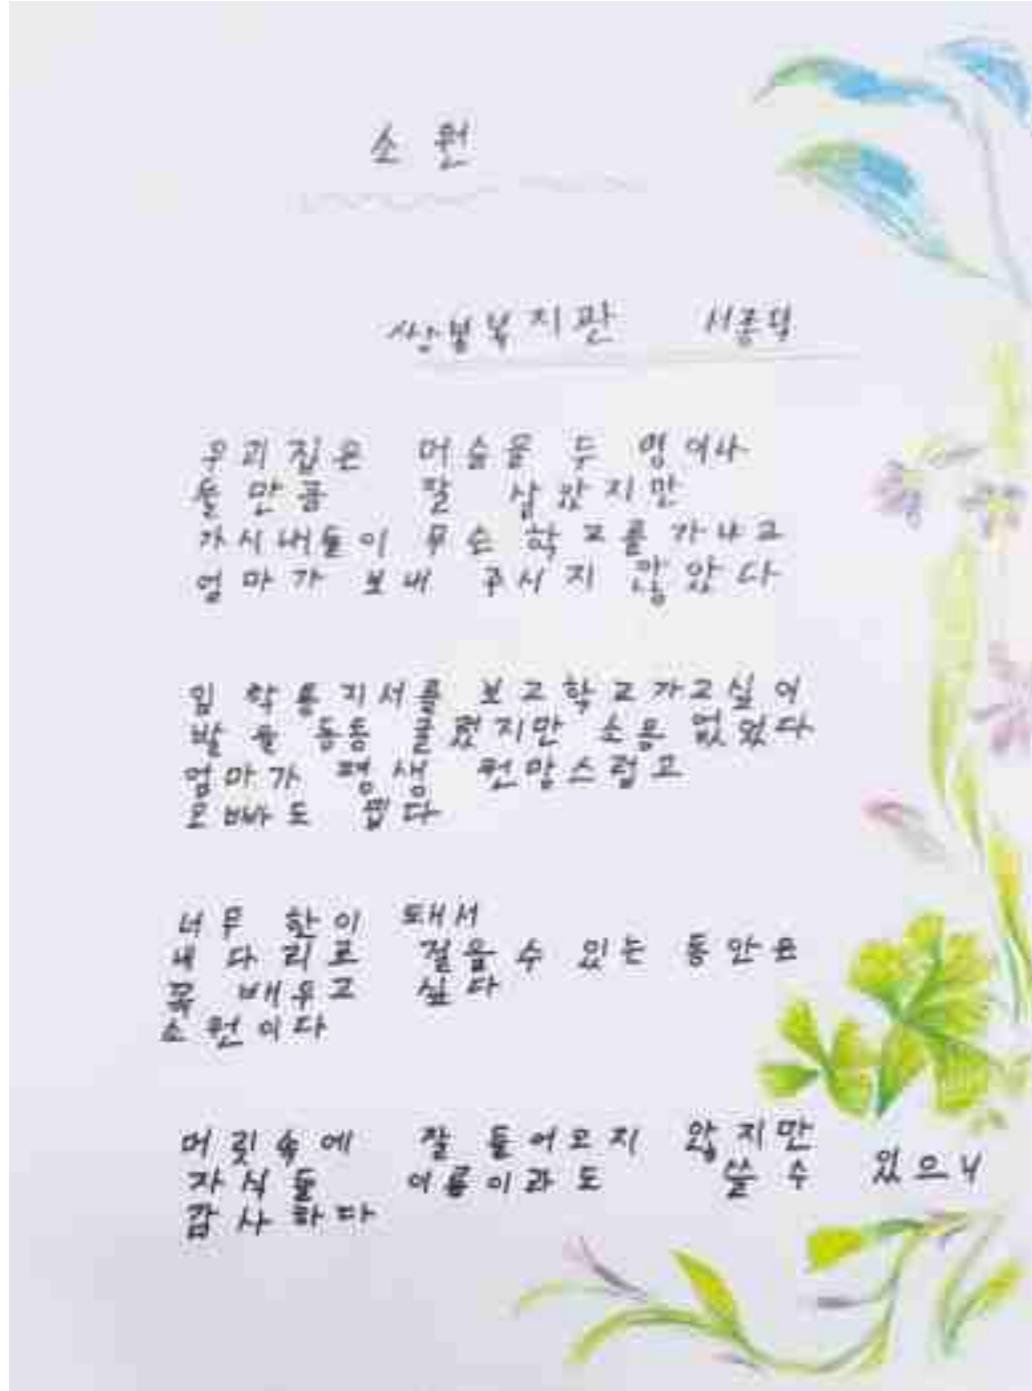 소원
쌍봉복지관 서종덕
우리집은 머슴을 두 명이나
둘 만큼 잘 살았지만
가시내들이 무슨 학교를 가냐고
엄마가 보내 주시지 않았다
입학통지서를 보고 학교가고싶어
발을 동동 굴렀지만 소용 없었다
엄마가 평생 원망스럽고
오빠도 밉다
너무 한이 돼서
내 다리로 걸을수 있는 동안은
꼭 배우고 싶다
소원이다
머릿속에 잘 들어오지 않지만
자식들 이름이라도 쓸 수 있으니
감사하다